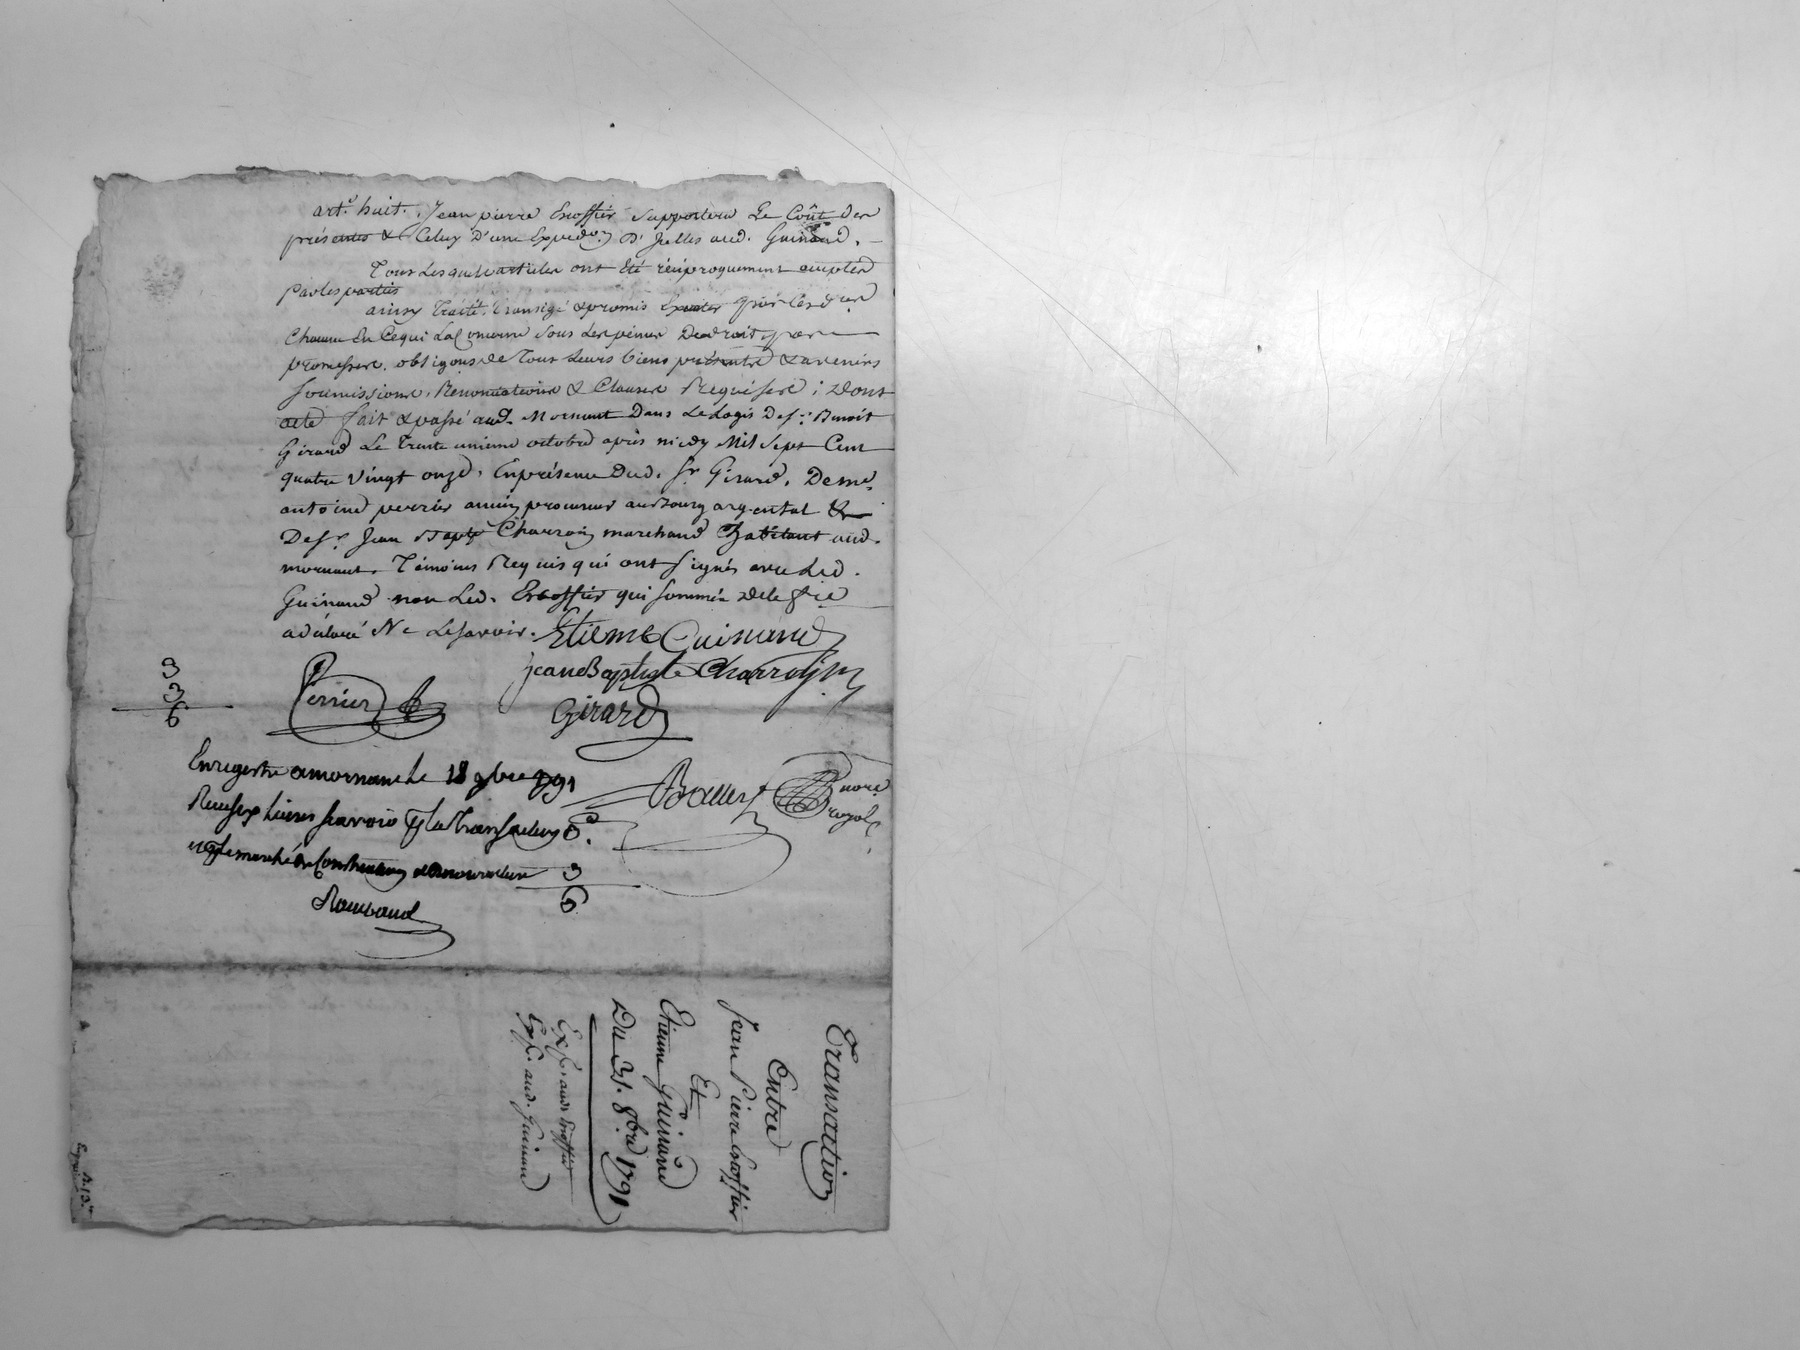 art.e huit. Jean pierre Escoffier Supportera Le Coût des
présentes & Celuy D'une Expedon. D'Icelles aud. Guinand.
Tous Lesquels articles ont Eté réciproquement acceptés
par les parties
ainsy Traité, Transigé & promis Executer par les des.
Chacune En Cequi La Concerne Sous Les peines De droit par
promesses, obligaons de Tous Leurs biens présents & avenirs
Soumissions, Renonciations & Clauses Requises ; Dont
acte fait & passé aud. Mornant Dans Le Logis De Sr. Benoit
Girard Le Trente unieme octobre après midy Mil Sept Cent
quatre Vingt onze, En présence Dud. Sr. Girard, De me.
antoine perrier ancien procureur au Bourg argental &
De Sr. Jean Bapte Charroin marchand habitant aud.
mornant, Témoins Requis qui ont Signés avec Led.
Guinand non Led. Escoffier qui sommé de le fre
a déclaré Ne Le savoir.
Etieme Guinand
Jean Baptiste Charroin
Perrier
Girard
3
3
6
Enregistré a mornant le 18 9bre 1791
Reçu six livres savoir pr la transaction 3
3
6
Raimbaud
nore
royal
Transaction
Entre
Jean Pierre Escoffier
Et
Etienne Guinand
Du 31. 8bre 1791
Exp. aud. Escoffier
Exp. aud. Guinand